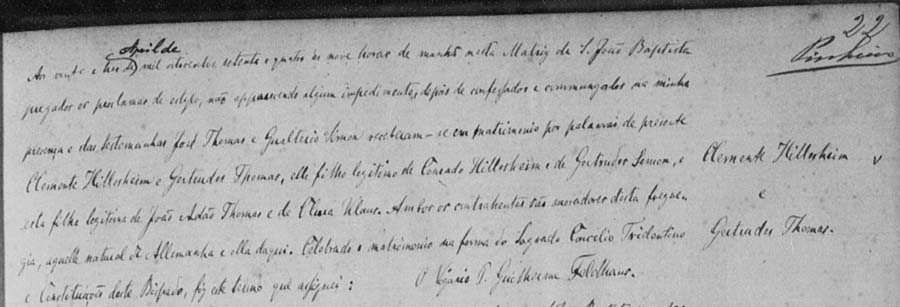 22
Pinheiro
Abril de
Aos vinte e tres de mil oitocentos setenta e quatro ás nove horas de manhã nesta Matriz de S. João Baptista
pregados os proclamas de estylo, não apparecendo algum impedimento, depois de confessados e commungados na minha
presença e das testemunhas José Thomas e Gualterio Simon receberam-se em matrimonio por palavras de presente
Clemente Hillesheim e Gertrudes Thomas, elle filho legitimo de Conrado Hillesheim e de Gertrudes Simon, e
esta filha legitima de João Adão Thomas e de Clara Klaus. Ambos os contrahentes são moradores desta fregue-
zia, aquelle natural d'Allemanha e ella daqui. Celebrado o matrimonio na forma do Sagrado Concilio Tridentino
e Constituições deste Bispado, fiz este termo que assignei:
O Vigario P. Guilherme Feldhaus.
Clemente Hillesheim v
e
Gertrudes Thomas.